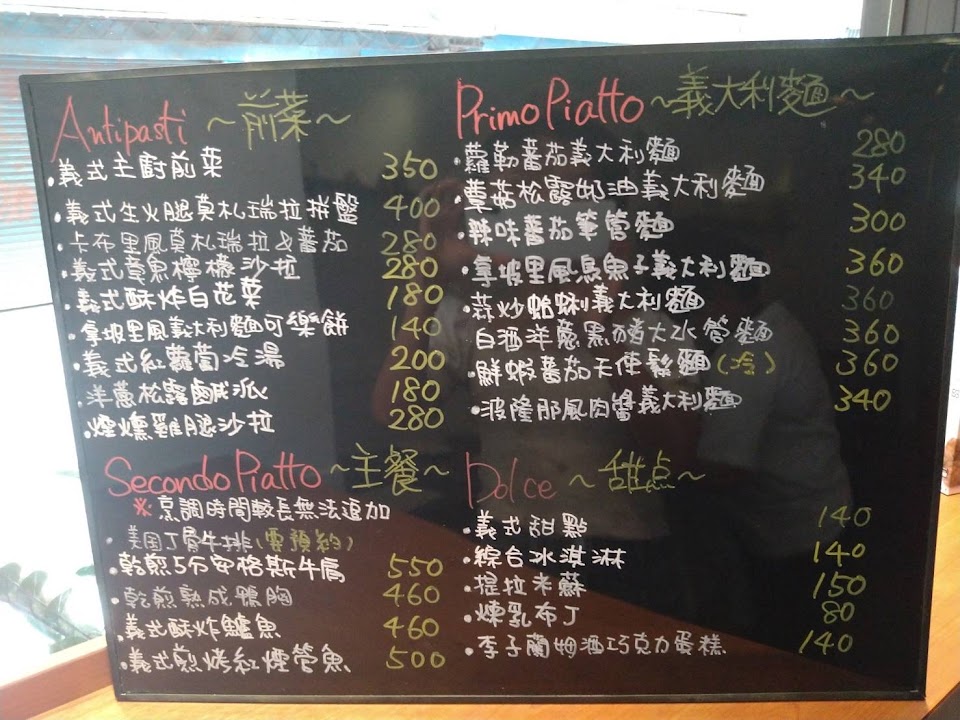 Antipasti ~前菜~
·義式主廚前菜 350
·義式生火腿莫札瑞拉拼盤 400
·卡布里風莫札瑞拉&蕃茄 280
·義式章魚檸檬沙拉 280
·義式酥炸白花菜 180
·拿坡里風義大利麵可樂餅 140
·義式紅蘿蔔冷湯 200
·洋蔥松露鹹派 180
·煙燻雞腿沙拉 280
Primo Piatto ~義大利麵~
·蘿勒蕃茄義大利麵 280
·蕈菇松露奶油義大利麵 340
·辣味蕃茄筆管麵 300
·拿坡里風烏魚子義大利麵 360
·蒜炒蛤蜊義大利麵 360
·白酒洋蔥黑豬大水管麵 360
·鮮蝦蕃茄天使髮麵(冷) 360
·波隆那風肉醬義大利麵 340
Secondo Piatto ~主餐~
※烹調時間較長無法追加
·美国丁骨牛排(要預約)
·乾煎5分安格斯牛肩 550
·乾煎熟成鴨胸 460
·義式酥炸鱸魚 460
·義式煎烤紅煙管魚 500
Dolce ~甜点~
·義式甜點 140
·綜合冰淇淋 140
·提拉米蘇 150
·煉乳布丁 80
·李子蘭姆酒巧克力蛋糕 140